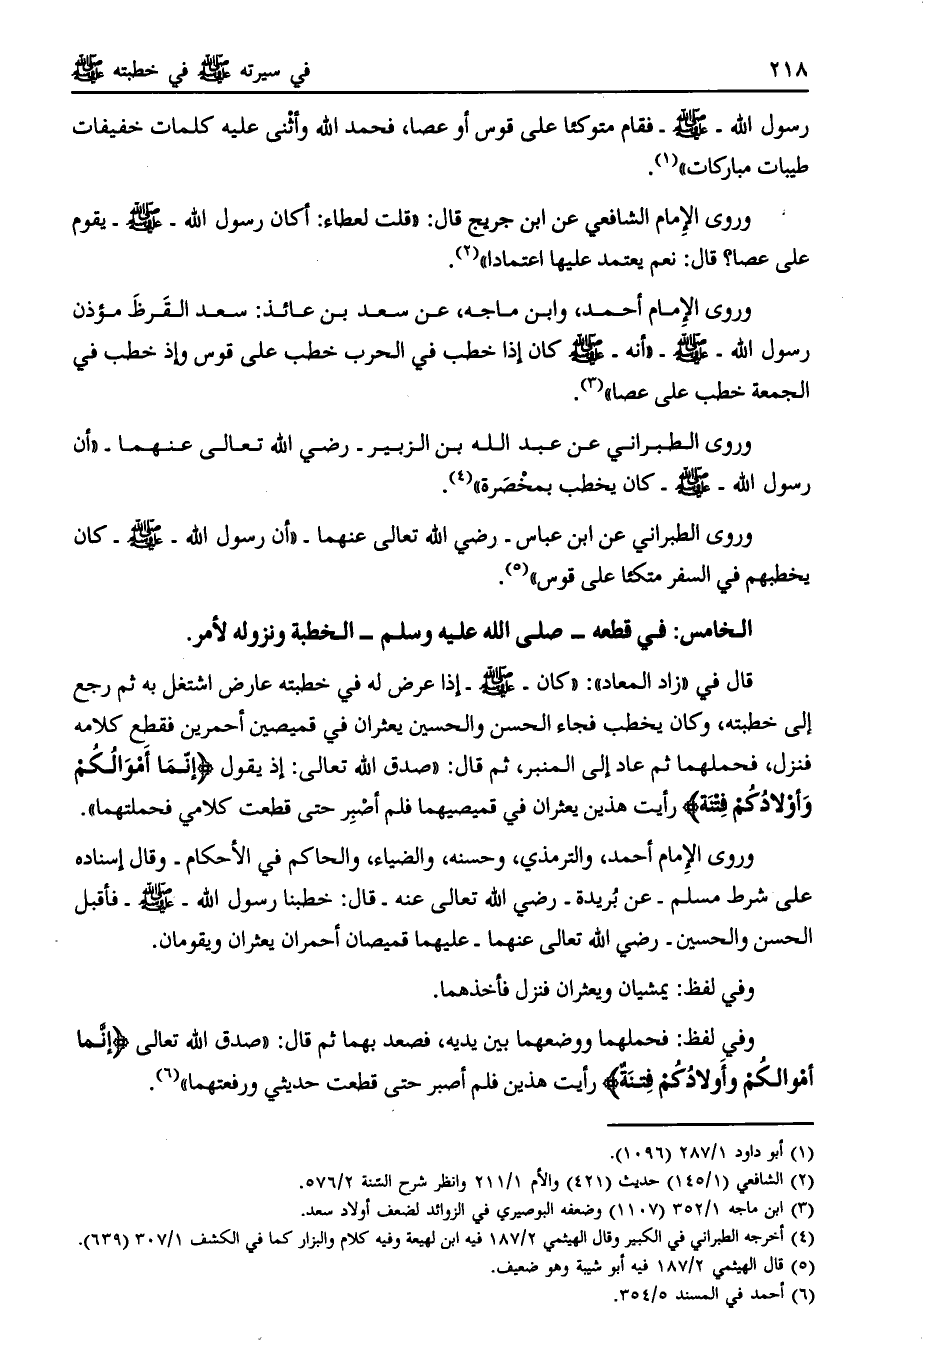 ٢١٨ في سيرته ﷺ في خطبته ﷺ
رسول الله ـ ﷺ ـ فقام متوكئا على قوس أو عصا، فحمد الله وأثْنى عليه كلمات خفيفات
طيبات مباركات»(١).
وروى الإِمام الشافعي عن ابن جريج قال: «قلت لعطاء: أكان رسول الله ـ ﷺ ـ يقوم
على عصا؟ قال: نعم يعتمد عليها اعتمادا»(٢).
وروى الإِمام أحمد، وابن ماجه، عن سعد بن عائذ: سعد القَرظَ مؤذن
رسول الله ـ ﷺ ـ «أنه ـ ﷺ كان إذا خطب في الحرب خطب على قوس وإذ خطب في
الجمعة خطب على عصا»(٣).
وروى الطبراني عن عبد الله بن الزبير ـ رضي الله تعالى عنهما ـ «أن
رسول الله ـ ﷺ ـ كان يخطب بمخْصَرة»(٤).
وروى الطبراني عن ابن عباس ـ رضي الله تعالى عنهما ـ «أن رسول الله ـ ﷺ ـ كان
يخطبهم في السفر متكئا على قوس»(٥).
الخامس: في قطعه ـ صلى الله عليه وسلم ـ الخطبة ونزوله لأمر.
قال في «زاد المعاد»: «كان ـ ﷺ ـ إذا عرض له في خطبته عارض اشتغل به ثم رجع
إلى خطبته، وكان يخطب فجاء الحسن والحسين يعثران في قميصين أحمرين فقطع كلامه
فنزل، فحملهما ثم عاد إلى المنبر، ثم قال: «صدق الله تعالى: إذ يقول ﴿إنَّمَا أَمْوَالُكُمْ
وَأوْلادُكُمْ فِتْنَة﴾ رأيت هذين يعثران في قميصيهما فلم أصْبِر حتى قطعت كلامي فحملتهما».
وروى الإِمام أحمد، والترمذي، وحسنه، والضياء، والحاكم في الأحكام ـ وقال إسناده
على شرط مسلم ـ عن بُريدة ـ رضي الله تعالى عنه ـ قال: خطبنا رسول الله ـ ﷺ ـ فأقبل
الحسن والحسين ـ رضي الله تعالى عنهما ـ عليهما قميصان أحمران يعثران ويقومان.
وفي لفظ: يمشيان ويعثران فنزل فأخذهما.
وفي لفظ: فحملهما ووضعهما بين يديه، فصعد بهما ثم قال: «صدق الله تعالى ﴿إنَّما
أمْوالكُمْ وأَولادُكُمْ فِتنَةٌ﴾ رأيت هذين فلم أصبر حتى قطعت حديثي ورفعتهما»(٦).
(١) أبو داود ٢٨٧/١ (١٠٩٦).
(٢) الشافعي (١٤٥/١) حديث (٤٢١) والأم ٢١١/١ وانظر شرح السّنة ٥٧٦/٢.
(٣) ابن ماجه ٣٥٢/١ (١١٠٧) وضعفه البوصيري في الزوائد لضعف أولاد سعد.
(٤) أخرجه الطبراني في الكبير وقال الهيثمي ١٨٧/٢ فيه ابن لهيعة وفيه كلام والبزار كما في الكشف ٣٠٧/١ (٦٣٩).
(٥) قال الهيثمي ١٨٧/٢ فيه أبو شيبة وهو ضعيف.
(٦) أحمد في المسند ٣٥٤/٥.